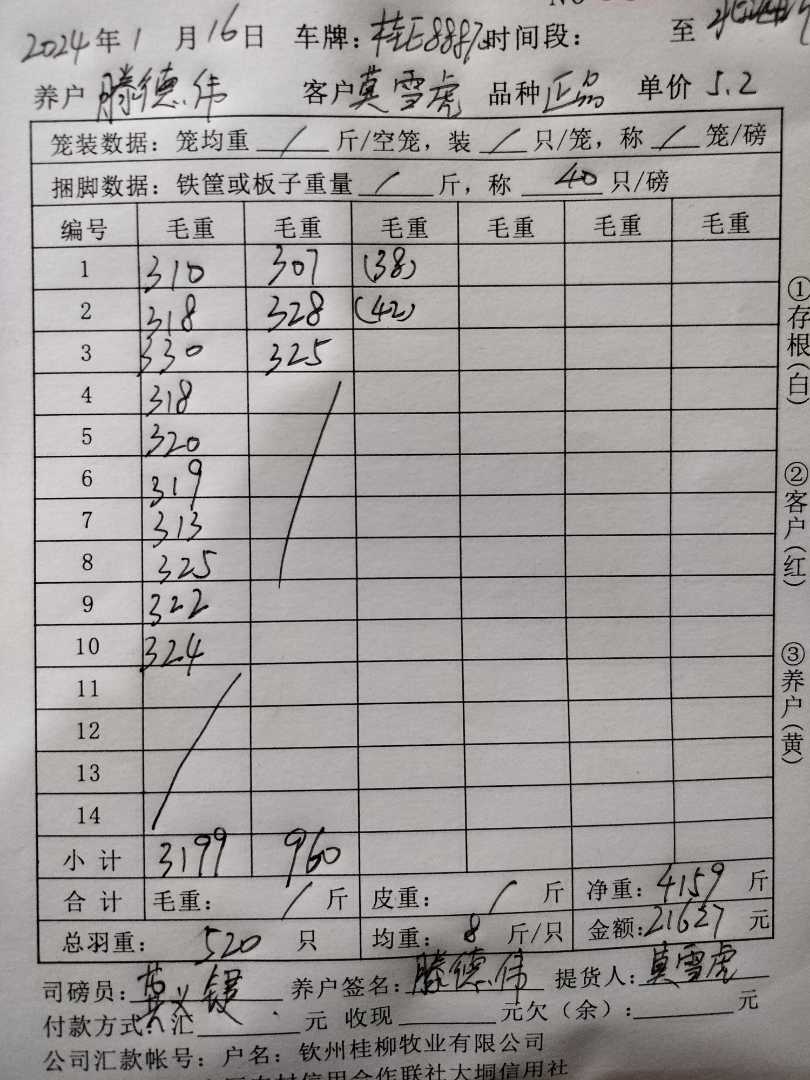 2024年1月16日 车牌:桂E8887 时间段: 至
养户 滕德伟 客户 莫雪虎 品种 正品 单价 5.2
笼装数据:笼均重 / 斤/空笼,装 / 只/笼,称 / 笼/磅
捆脚数据:铁筐或板子重量 / 斤,称 40 只/磅
编号 毛重 毛重 毛重 毛重 毛重 毛重
1 310 307 (38)
2 318 328 (42)
3 330 325
4 318
5 320
6 319
7 313
8 325
9 322
10 324
11
12
13
14
小计 3199 960
合计 毛重: / 斤 皮重: / 斤 净重:4159 斤
总羽重: 520 只 均重: 8 斤/只 金额:21627 元
司磅员: 养户签名:滕德伟 提货人:莫雪虎
付款方式:汇 元 收现 元欠(余): 元
公司汇款帐号:户名:钦州桂柳牧业有限公司
农村信用合作联社大垌信用社
①存根(白)
②客户(红)
③养户(黄)